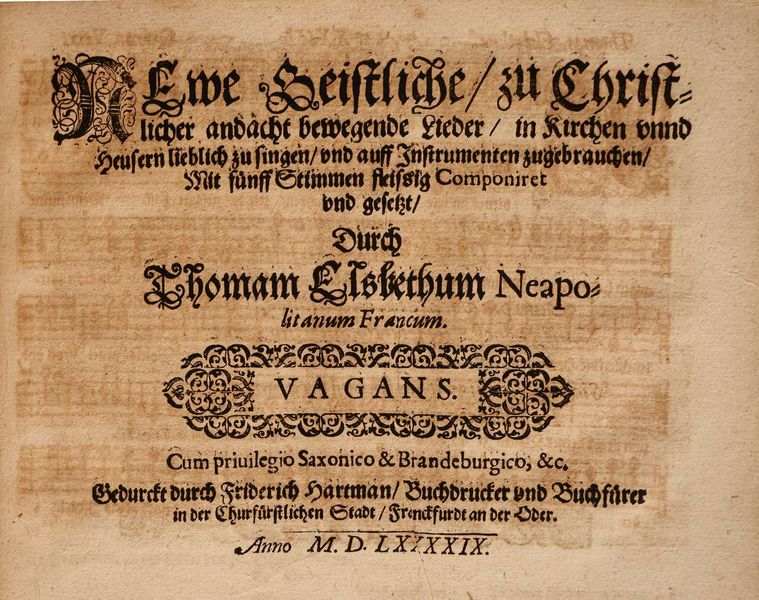 NEwe Geistliche/ zu Christ⸗
licher andacht bewegende Lieder/ in Kirchen vnnd
Heusern lieblich zu singen/ vnd auff Instrumenten zugebrauchen/
Mit fünff Stimmen fleissig Componiret
vnd gesetzt/
Durch
Thomam Elsbethum Neapo⸗
litanum Francum.
VAGANS.
Cum priuilegio Saxonico & Brandeburgico, &c.
Gedurckt durch Friderich Hartman/ Buchdrucker vnd Buchfürer
in der Churfürstlichen Stadt/ Franckfurdt an der Oder.
Anno M. D. LXXXXIX.